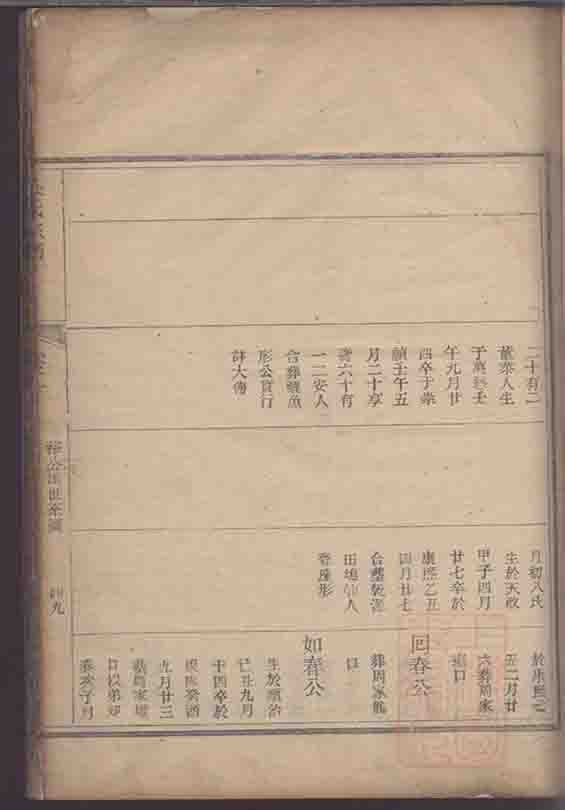 二十有二
葉恭人生
于萬曆壬
午九月廿
四卒于崇
禎壬午五
月二十享
壽六十有
一二安人
合葬鯉魚
形公實行
詳大傳
月初八氏
生於天啟
甲子四月
廿七卒於
康熙乙丑
四月廿七
合墾
田塢仙人
登座形
五二月廿
六葬周家
塘口
回春公
葬周家
口
如春公
生於順治
己丑九月
十四卒於
康熙癸酉
九月廿三
葬周家塘
口以弟
春次子
世系圖
四九